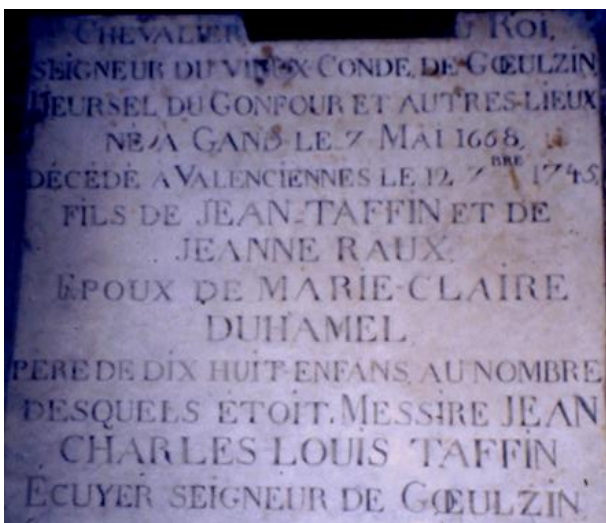 CHEVALIER, ROI,
SEIGNEUR DU VIEUX-CONDE, DE GŒULZIN,
HEURSEL DU GONFOUR ET AUTRES-LIEUX
NÉ A GAND LE 7 MAI 1668,
DÉCÉDÉ A VALENCIENNES LE 12 7BRE 1745,
FILS DE JEAN-TAFFIN ET DE
JEANNE RAUX
EPOUX DE MARIE-CLAIRE
DUHAMEL
PERE DE DIX HUIT-ENFANS, AU NOMBRE
DESQUELS ÉTOIT, MESSIRE JEAN
CHARLES LOUIS TAFFIN
ECUYER SEIGNEUR DE GŒULZIN,